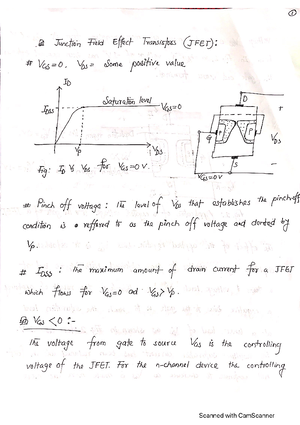 ①
Junction Field Effect Transistors (JFET):
# VGS=0, VDS= Some positive value
ID
IDSS
Saturation level
VGS=0
VP
VDS
D
G
P
P
S
VDS
VGS=0V
Fig: ID Vs VDS for VGS=0 v.
# Pinch off voltage: The level of VDS that establishes the pinchoff
condition is reffered to as the pinch off voltage and donted by
VP.
# IDSS: The maximum amount of drain current for a JFET
which flows for VGS=0 ad VDS>VP.
VGS <0 :-
The voltage from gate to source VGS is the controlling
voltage of the JFET. For the n-channel device the controlling
Scanned with CamScanner